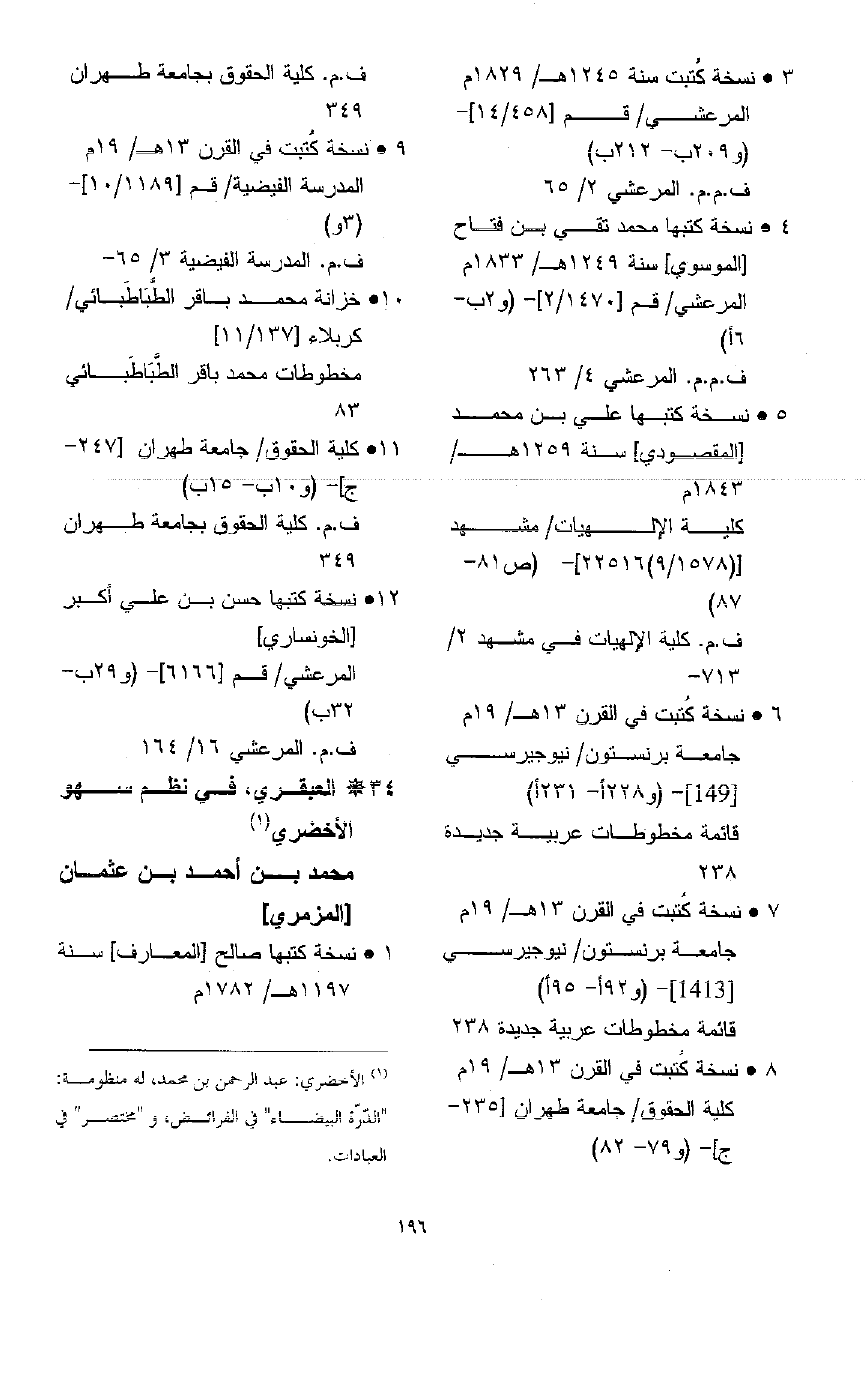 ٣ • نسخة كُتبت سنة ١٢٤٥هـ/ ١٨٢٩م
المرعشي/ قم [١٤/٤٥٨]-
(و٢٠٩ب- ٢١٢ب)
ف.م.م. المرعشي ٢/ ٦٥
٤ • نسخة كتبها محمد تقي بن فتاح
[الموسوي] سنة ١٢٤٩هـ/ ١٨٣٣م
المرعشي/ قم [٢/١٤٧٠]- (و٢ب-
٦أ)
ف.م.م. المرعشي ٤/ ٢٦٣
٥ • نسخة كتبها علي بن محمد
[المقصودي] سنة ١٢٥٩هـ/
١٨٤٣م
كلية الإلهيات/ مشهد
[(٩/١٥٧٨)٢٢٥١٦]- (ص٨١-
٨٧)
ف.م. كلية الإلهيات في مشهد ٢/
٧١٣-
٦ • نسخة كُتبت في القرن ١٣هـ/ ١٩م
جامعة برنستون/ نيوجيرسي
[149]- (و٢٢٨أ- ٢٣١أ)
قائمة مخطوطات عربية جديدة
٢٣٨
٧ • نسخة كُتبت في القرن ١٣هـ/ ١٩م
جامعة برنستون/ نيوجيرسي
[1413]- (و٩٢أ- ٩٥أ)
قائمة مخطوطات عربية جديدة ٢٣٨
٨ • نسخة كُتبت في القرن ١٣هـ/ ١٩م
كلية الحقوق/ جامعة طهران [٢٣٥-
ج]- (و٧٩- ٨٢)
ف.م. كلية الحقوق بجامعة طهران
٣٤٩
٩ • نسخة كُتبت في القرن ١٣هـ/ ١٩م
المدرسة الفيضية/ قم [١٠/١١٨٩]-
(٣و)
ف.م. المدرسة الفيضية ٣/ ٦٥-
١٠• خزانة محمد باقر الطَّبَاطَبائي/
كربلاء [١١/١٣٧]
مخطوطات محمد باقر الطَّبَاطَبائي
٨٣
١١• كلية الحقوق/ جامعة طهران [٢٤٧-
ج]- (و١٠ب- ١٥ب)
ف.م. كلية الحقوق بجامعة طهران
٣٤٩
١٢• نسخة كتبها حسن بن علي أكبر
[الخونساري]
المرعشي/ قم [٦١٦٦]- (و٢٩ب-
٣٢ب)
ف.م. المرعشي ١٦/ ١٦٤
٣٤* العبقري، في نظم سهو
الأخضري(١)
محمد بن أحمد بن عثمان
[المزمري]
١ • نسخة كتبها صالح [المعارف] سنة
١١٩٧هـ/ ١٧٨٢م
(١) الأخضري: عبد الرحمن بن محمد، له منظومة:
"الدّرّة البيضاء" في الفرائض، و "مختصر" في
العبادات.
١٩٦